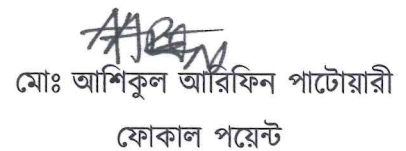 মোঃ আশিকুল আরিফিন পাটোয়ারী
ফোকাল পয়েন্ট